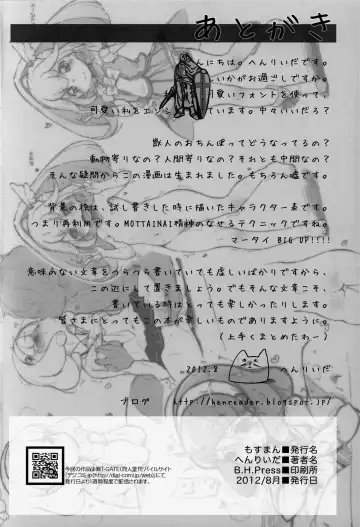 あとがき
んにちは。へんりいだです。
いかがお過ごしですか。
可愛いフォントを使って、
可愛い私をエンジ ています。中々いいだろ？
獣人のおちんぽってどうなってるの？
動物寄りなの？人間寄りなの？それとも中間なの？
そんな疑問からこの漫画は生まれました。もちろん嘘です。
背景の絵は、試し書きした時に描いたキャラクター表です。
つまり再利用です。MOTTAINAI精神のなせるテクニックですね。
マータイ BIG UP!!!!
意味のない文章をつらつら書いていても虚しいばかりですから、
この辺にして置きましょう。でもそんな文章こそ、
書いている時はとっても楽しかったりします。
皆さまにとってもこの本が楽しいものでありますように。
(上手くまとめたわー)
2012.8 へんりいだ
ブログ http://henreader.blogspot.jp/
今回の作品は携T-GATE(同人堂)モバイルサイト
「デジコミ」(http://digi-comi.jp/web)にて
発行日より1週間程度で配信されます。
もすまん■発行名
へんりいだ■著者名
B.H.Press■印刷所
2012/8月■発行日